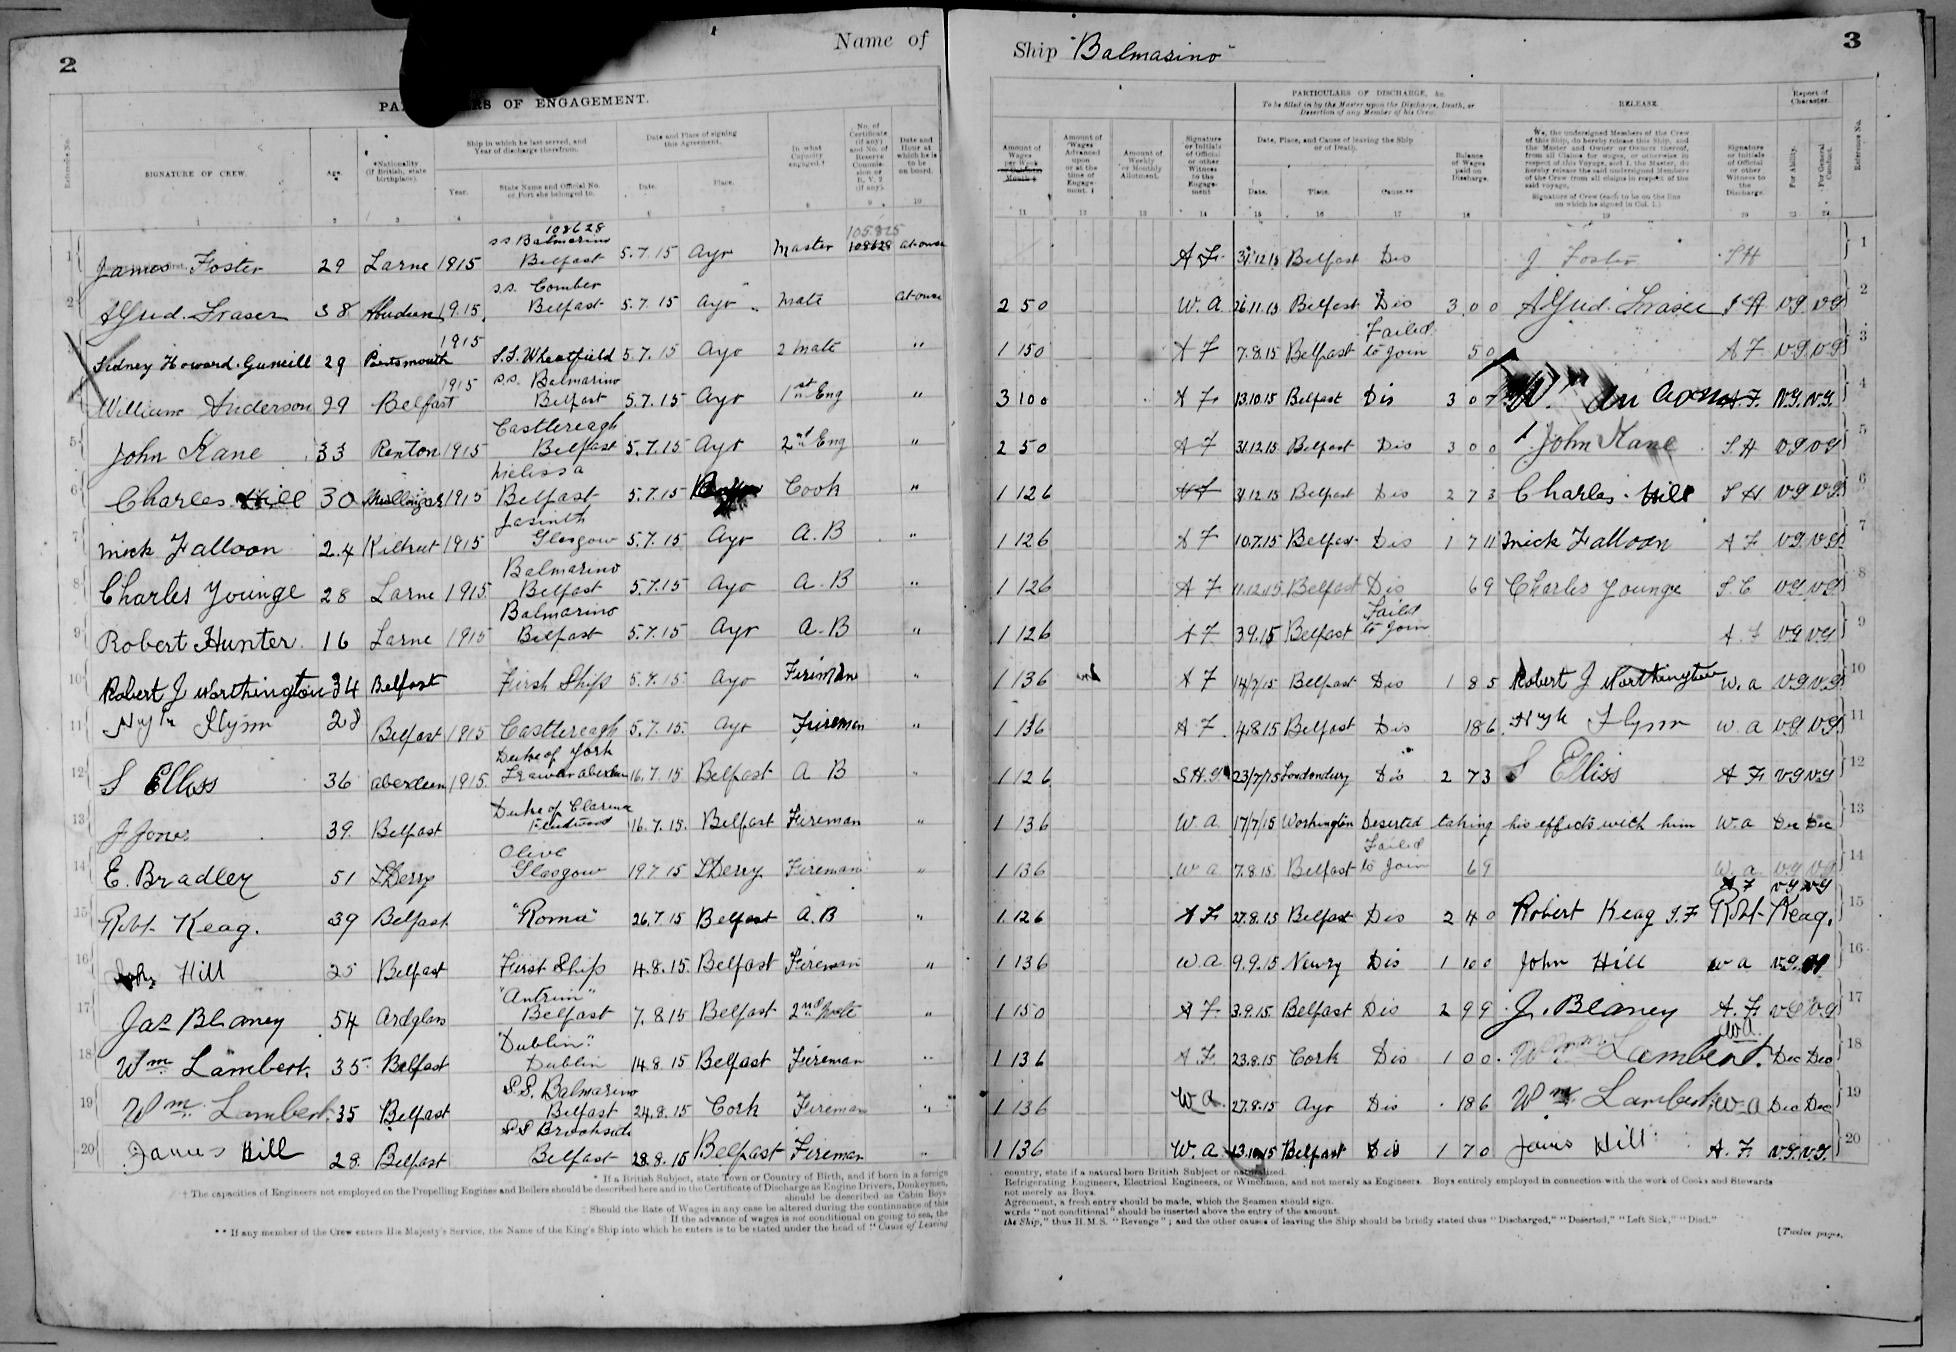 2
Name of
PARTICULARS OF ENGAGEMENT.
Reference No.
SIGNATURE OF CREW.
Age.
*Nationality (if British, state birthplace).
Ship in which he last served, and Year of discharge therefrom.
Year.
State Name and Official No. or Port she belonged to.
Date and Place of signing this Agreement.
Date.
Place.
In what Capacity engaged.†
No. of Certificate (if any) and No. of Reserve Commission or R. V. 2 (if any).
Date and Hour at which he is to be on board.
1 2 3 4 5 6 7 8 9 10
1 James Foster 29 Larne 1915 108628 s.s Balmarino Belfast 5.7.15 Ayr Master 105825 108628 at once
2 Alfred. Fraser 38 Aberdeen 1915. s.s. Comber Belfast 5.7.15 Ayr Mate at once
3 Sidney Howard. 29 Portsmouth 1915 S.S. Wheatfield 5.7.15 Ayr 2 Mate "
4 William Anderson 29 Belfast 1915 s.s. Balmarino Belfast 5.7.15 Ayr 1st Eng "
5 John Kane 33 Renton 1915 Castlereagh Belfast 5.7.15 Ayr 2nd Eng "
6 Charles Hill 30 Mullingar 1915 Melissa Belfast 5.7.15 Cook "
7 Mick Falloon 24 1915 Jacinth Glasgow 5.7.15 Ayr A.B "
8 Charles Younge 28 Larne 1915 Balmarino Belfast 5.7.15 Ayr A.B "
9 Robert Hunter. 16 Larne 1915 Balmarino Belfast 5.7.15 Ayr A.B "
10 Robert J Worthington 34 Belfast First Ship 5.7.15 Ayr Fireman "
11 Hugh Flynn 28 Belfast 1915 Castlereagh 5.7.15. Ayr Fireman "
12 S Elliss 36 aberdeen 1915. Duke of York 16.7.15 Belfast A B "
13 J Jones 39. Belfast Duke of Clarence Fleetwood 16.7.15. Belfast Fireman "
14 E. Bradley 51 LDerry Olive Glasgow 19.7.15 LDerry Fireman "
15 Robt Keag. 39 Belfast "Roma" 26.7.15 Belfast A.B "
16 John Hill 25 Belfast First Ship 4.8.15. Belfast Fireman "
17 Jas Blaney 54 Ardglass "Antrim" Belfast 7.8.15 Belfast 2nd Mate "
18 Wm Lambert. 35 Belfast "Dublin" Dublin 14.8.15 Belfast Fireman "
19 Wm Lambert. 35 Belfast S.S. Balmarino Belfast 24.8.15 Cork Fireman "
20 James Hill 28. Belfast S.S Brookside Belfast 28.8.15 Belfast Fireman "
* If a British Subject, state Town or Country of Birth, and if born in a foreign
† The capacities of Engineers not employed on the Propelling Engines and Boilers should be described here and in the Certificate of Discharge as Engine Drivers, Donkeymen,
should be described as Cabin Boys
‡ Should the Rate of Wages in any case be altered during the continuance of this
If the advance of wages is not conditional on going to sea, the
** If any member of the Crew enters His Majesty's Service, the Name of the King's Ship into which he enters is to be stated under the head of "Cause of Leaving
Ship "Balmarino"
3
PARTICULARS OF DISCHARGE, &c.
To be filled in by the Master upon the Discharge, Death, or Desertion of any Member of his Crew.
RELEASE.
Report of Character.
Amount of Wages per Week or Calendar Month ‡
Amount of Wages Advanced upon or at the time of Engagement. ‡
Amount of Weekly or Monthly Allotment.
Signature or Initials of Official or other Witness to the Engagement
Date, Place, and Cause of leaving the Ship or of Death.
Date.
Place.
Cause.**
Balance of Wages paid on Discharge.
We, the undersigned Members of the Crew of this Ship, do hereby release this Ship, and the Master and Owner or Owners thereof, from all Claims for wages, or otherwise in respect of this Voyage, and I, the Master, do hereby release the said undersigned Members of the Crew from all claims in respect of the said voyage.
Signature of Crew (each to be on the line on which he signed in Col. 1.)
Signature or Initials of Official or other Witness to the Discharge.
For Ability.
For General Conduct.
Reference No.
11 12 13 14 15 16 17 18 19 20 21 22
A F. 31.12.15 Belfast Dis J Foster S H 1
2 50 W. A. 26.11.15 Belfast Dis 3 0 0 Alfred. Fraser S H VG VG 2
1 150 A F 7.8.15 Belfast Failed to join 50 A F VG VG 3
3 100 A F. 13.10.15 Belfast Dis 3 0 7 A.F. V.G. V.G. 4
2 50 A F 31.12.15 Belfast Dis 3 0 0 John Kane S. H VG VG 5
1 126 A F 31.12.15 Belfast Dis 2 7 3 Charles. Hill S H VG VG 6
1 126 A F 10.7.15 Belfast Dis 1 7 11 Mick Falloon A F. VG VG 7
1 126 A F 11.12.15 Belfast Dis 69 Charles Younge S. C VG VG 8
1 126 A F 3.9.15 Belfast Failed to join A. F VG VG 9
1 136 A F 14/7/15 Belfast Dis 1 8 5 Robert J Worthington W. a VG VG 10
1 136 A F. 4.8.15 Belfast Dis 186 Hugh Flynn W. a VG VG 11
1 126 S.H.G. 23/7/15 Londonderry Dis 2 73 S Elliss A F. VG VG 12
1 136 W. A. 17/7/15 Workington Deserted taking his effects with him W. a Dec Dec 13
1 136 W a 7.8.15 Belfast Failed to join 69 W. a VG VG 14
1 126 A F 27.8.15 Belfast Dis 2 4 0 Robert Keag S. F A F VG VG Robt Keag. 15
1 136 W. a 9.9.15 Newry Dis 1 10 0 John Hill W a VG 16
1 150 A F 3.9.15 Belfast Dis 2 9 9 J. Blaney A. F VG VG 17
1 136 A F. 23.8.15 Cork Dis 1 0 0. Wm Lambert. Wa Dec Dec 18
1 136 W a. 27.8.15 Ayr Dis 186 Wm Lambert. W a Dec Dec 19
1 136 W. a 13.10.15 Belfast Dis 1 7 0 James Hill A. F. VG. VG. 20
country, state if a natural born British Subject or naturalised.
Refrigerating Engineers, Electrical Engineers, or Winchmen, and not merely as Engineers. Boys entirely employed in connection with the work of Cooks and Stewards
not merely as Boys.
Agreement, a fresh entry should be made, which the Seamen should sign.
words "not conditional" should be inserted above the entry of the amount.
the Ship," thus H.M.S. "Revenge"; and the other causes of leaving the Ship should be briefly stated thus "Discharged," "Deserted," "Left Sick," "Died."
[Twelve pages.